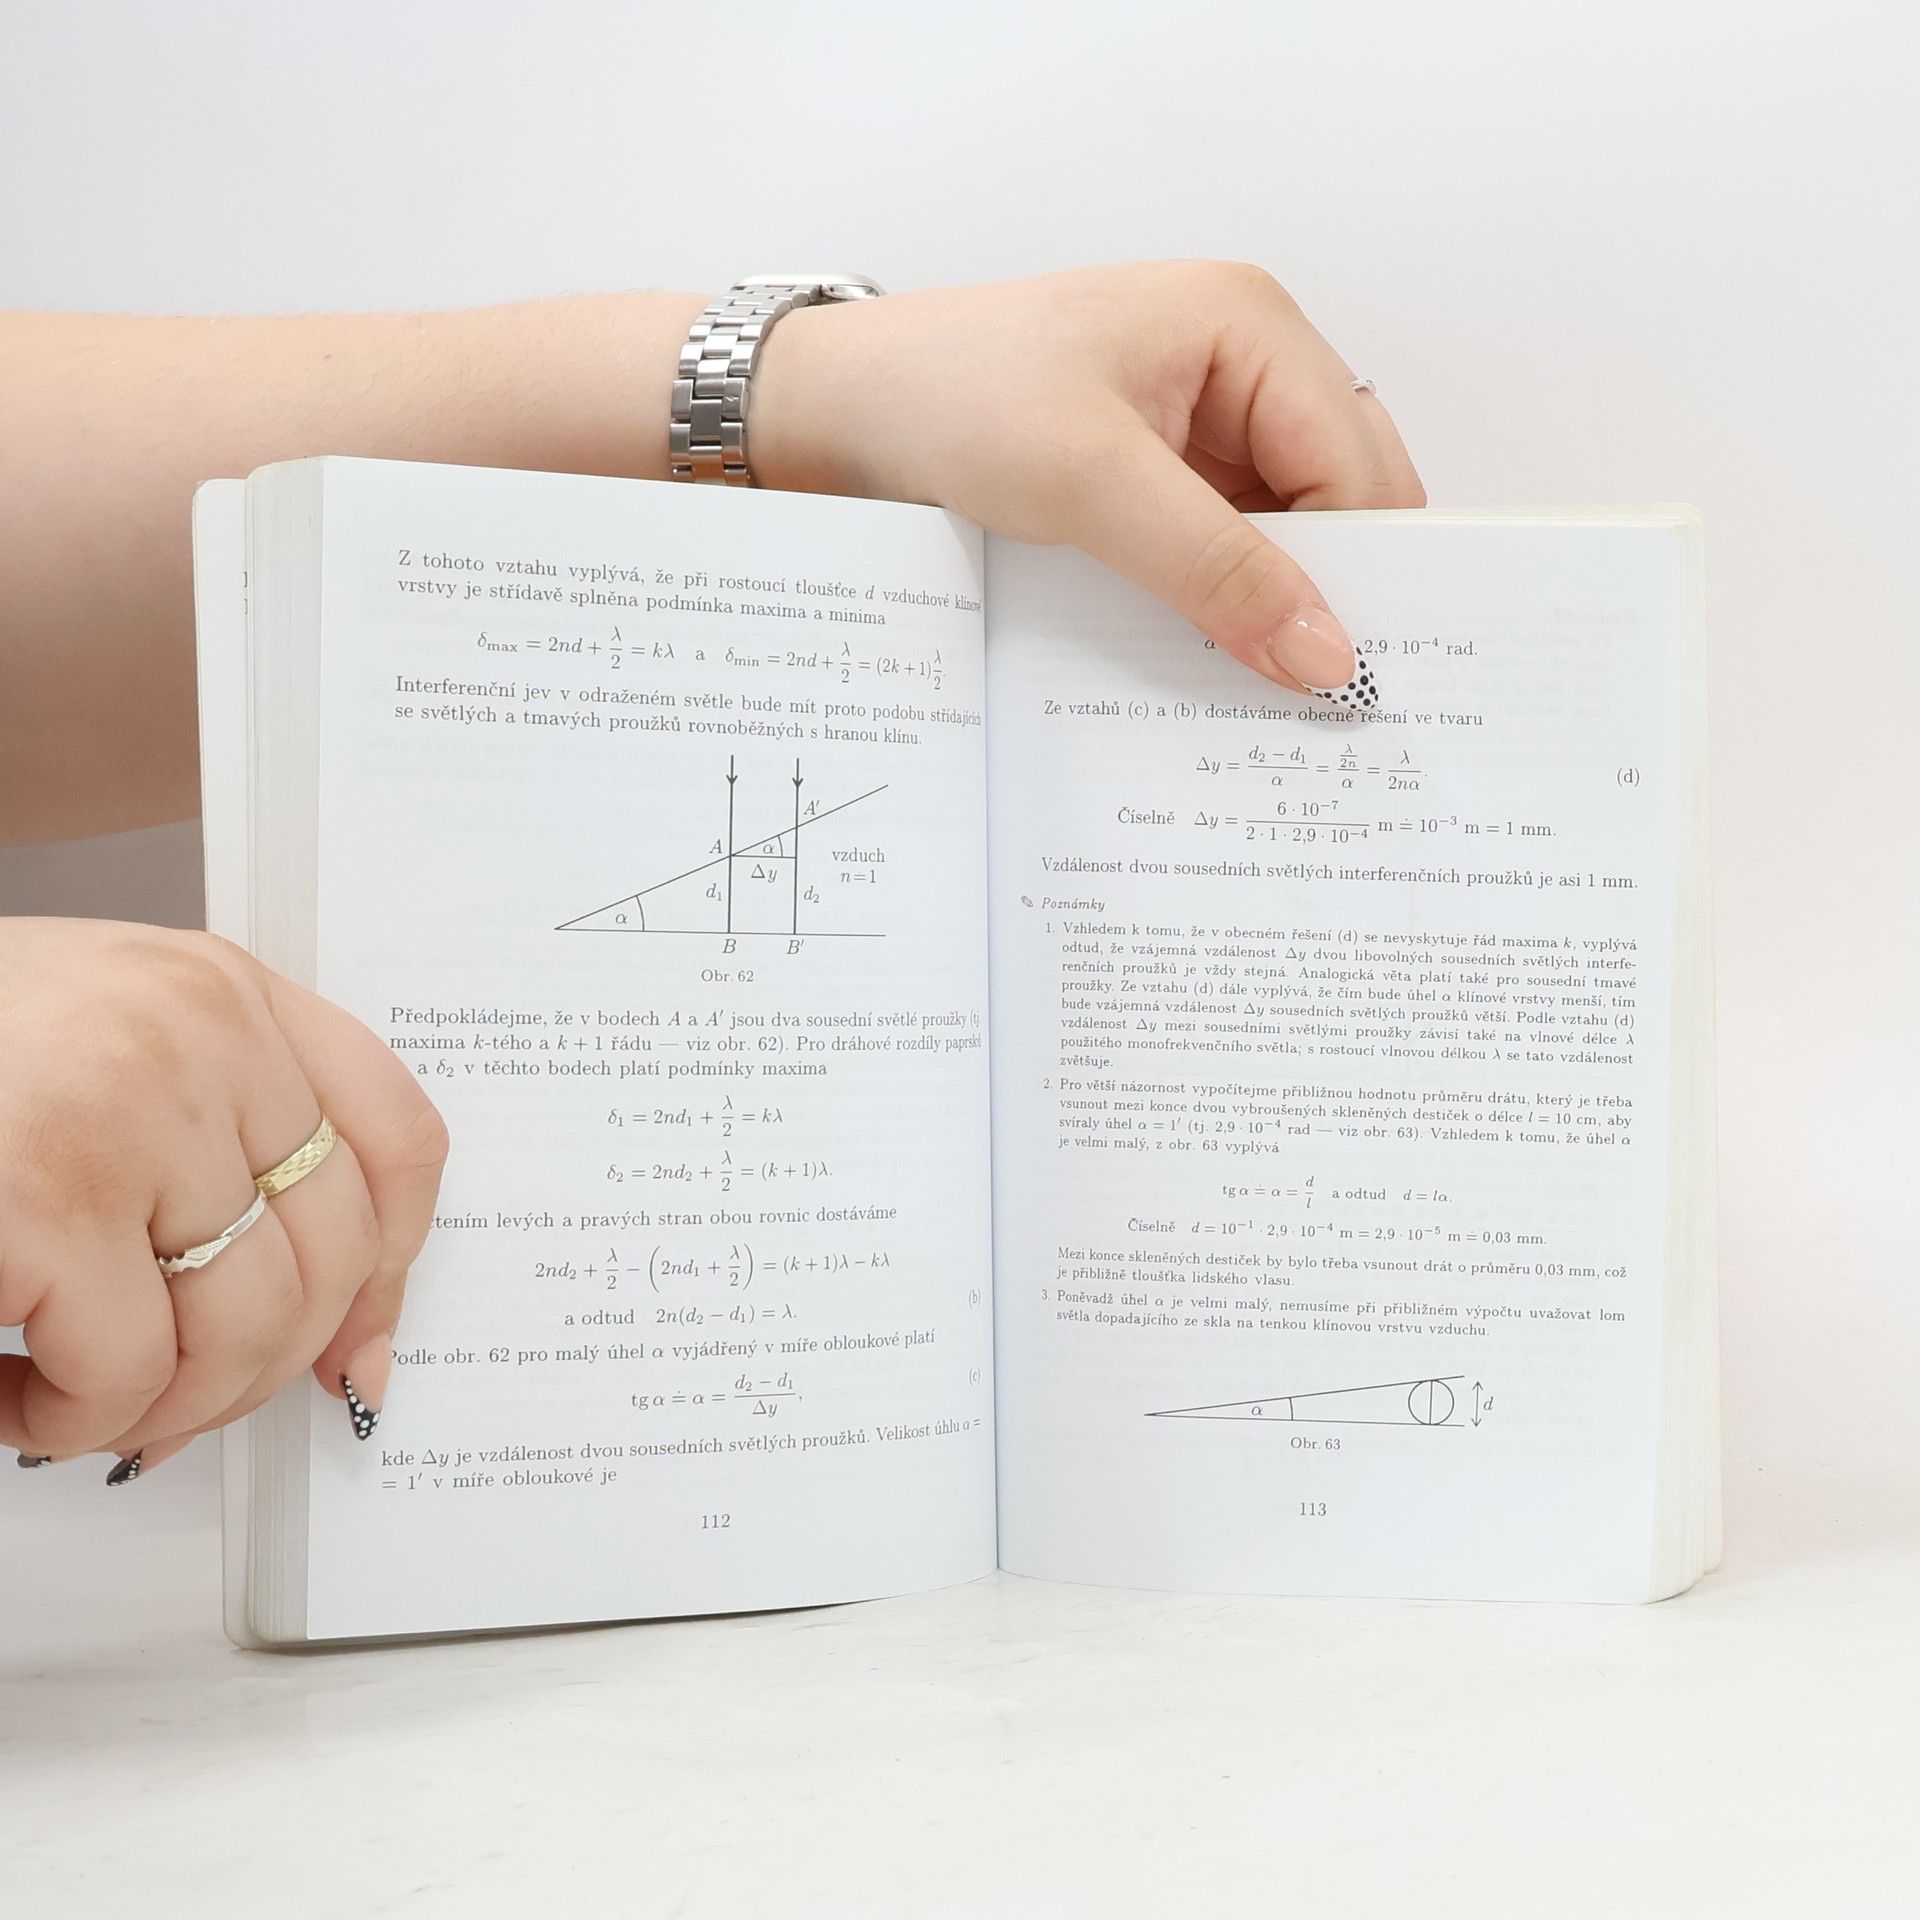 Z tohoto vztahu vyplývá, že při rostoucí tloušťce d vzduchové klínové
vrstvy je střídavě splněna podmínka maxima a minima
δmax = 2nd + λ/2 = kλ a δmin = 2nd + λ/2 = (2k + 1)λ/2.
Interferenční jev v odraženém světle bude mít proto podobu střídajících
se světlých a tmavých proužků rovnoběžných s hranou klínu.
A′
A α vzduch
Δy n=1
d₁ d₂
α
B B′
Obr. 62
Předpokládejme, že v bodech A a A′ jsou dva sousední světlé proužky (tj.
maxima k-tého a k + 1 řádu — viz obr. 62). Pro dráhové rozdíly paprsků
a δ₂ v těchto bodech platí podmínky maxima
δ₁ = 2nd₁ + λ/2 = kλ
δ₂ = 2nd₂ + λ/2 = (k + 1)λ.
čtením levých a pravých stran obou rovnic dostáváme
2nd₂ + λ/2 − (2nd₁ + λ/2) = (k + 1)λ − kλ
a odtud 2n(d₂ − d₁) = λ. (b)
Podle obr. 62 pro malý úhel α vyjádřený v míře obloukové platí
tg α ≐ α = (d₂ − d₁)/Δy, (c)
kde Δy je vzdálenost dvou sousedních světlých proužků. Velikost úhlu α =
= 1′ v míře obloukové je
112
α 2,9 · 10⁻⁴ rad.
Ze vztahů (c) a (b) dostáváme obecné řešení ve tvaru
Δy = (d₂ − d₁)/α = (λ/2n)/α = λ/2nα. (d)
Číselně Δy = 6 · 10⁻⁷/(2 · 1 · 2,9 · 10⁻⁴) m ≐ 10⁻³ m = 1 mm.
Vzdálenost dvou sousedních světlých interferenčních proužků je asi 1 mm.
✎ Poznámky
1. Vzhledem k tomu, že v obecném řešení (d) se nevyskytuje řád maxima k, vyplývá
odtud, že vzájemná vzdálenost Δy dvou libovolných sousedních světlých interfe-
renčních proužků je vždy stejná. Analogická věta platí také pro sousední tmavé
proužky. Ze vztahu (d) dále vyplývá, že čím bude úhel α klínové vrstvy menší, tím
bude vzájemná vzdálenost Δy sousedních světlých proužků větší. Podle vztahu (d)
vzdálenost Δy mezi sousedními světlými proužky závisí také na vlnové délce λ
použitého monofrekvenčního světla; s rostoucí vlnovou délkou λ se tato vzdálenost
zvětšuje.
2. Pro větší názornost vypočítejme přibližnou hodnotu průměru drátu, který je třeba
vsunout mezi konce dvou vybroušených skleněných destiček o délce l = 10 cm, aby
svíraly úhel α = 1′ (tj. 2,9 · 10⁻⁴ rad — viz obr. 63). Vzhledem k tomu, že úhel α
je velmi malý, z obr. 63 vyplývá
tg α ≐ α = d/l a odtud d = lα.
Číselně d = 10⁻¹ · 2,9 · 10⁻⁴ m = 2,9 · 10⁻⁵ m ≐ 0,03 mm.
Mezi konce skleněných destiček by bylo třeba vsunout drát o průměru 0,03 mm, což
je přibližně tloušťka lidského vlasu.
3. Poněvadž úhel α je velmi malý, nemusíme při přibližném výpočtu uvažovat lom
světla dopadajícího ze skla na tenkou klínovou vrstvu vzduchu.
α d
Obr. 63
113